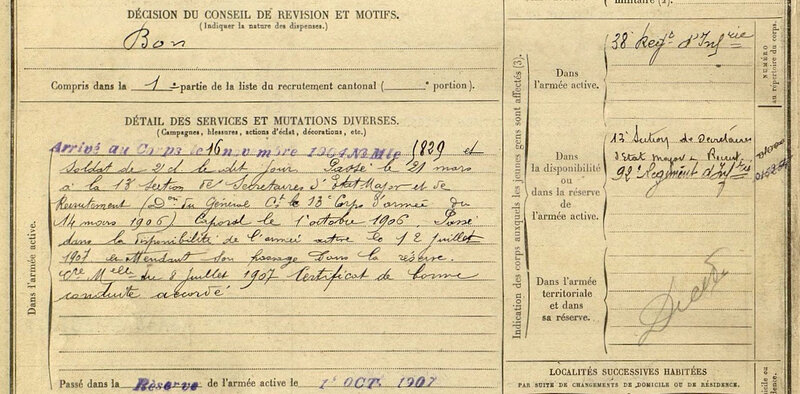 DÉCISION DU CONSEIL DE REVISION ET MOTIFS.
(Indiquer la nature des dispenses.)
Bon
Compris dans la 1e partie de la liste du recrutement cantonal ( e portion).
DÉTAIL DES SERVICES ET MUTATIONS DIVERSES.
(Campagnes, blessures, actions d'éclat, décorations, etc.)
Dans l'armée active.
Arrivé au Corps le 16 novembre 1904 No Mle 1829 et
Soldat de 2e cl le dit jour. Passé le 21 mars
à la 13e Section de Secrétaires d'Etat Major et de
Recrutement (Don du Général Ct le 13e Corps d'armée du
14 mars 1906) Caporal le 1er octobre 1906. Passé
dans la disponibilité de l'armée active le 12 juillet
1907 en attendant son passage dans la réserve.
Cre Melle du 8 juillet 1907 Certificat de bonne
conduite accordé
Passé dans la Réserve de l'armée active le 1er OCT. 1907
militaire (2).
Indication des corps auxquels les jeunes gens sont affectés (3).
Dans
l'armée active.
38e Regt d'Infrie
NUMÉRO
au répertoire du corps.
Dans
la disponibilité
ou
dans la réserve
de
l'armée active.
13e Section de Secrétaires
d'Etat major & Recrut.
92e Régiment d'Infrie
Dans l'armée
territoriale
et dans
sa réserve.
Décédé
LOCALITÉS SUCCESSIVES HABITÉES
PAR SUITE DE CHANGEMENTS DE DOMICILE OU DE RÉSIDENCE.